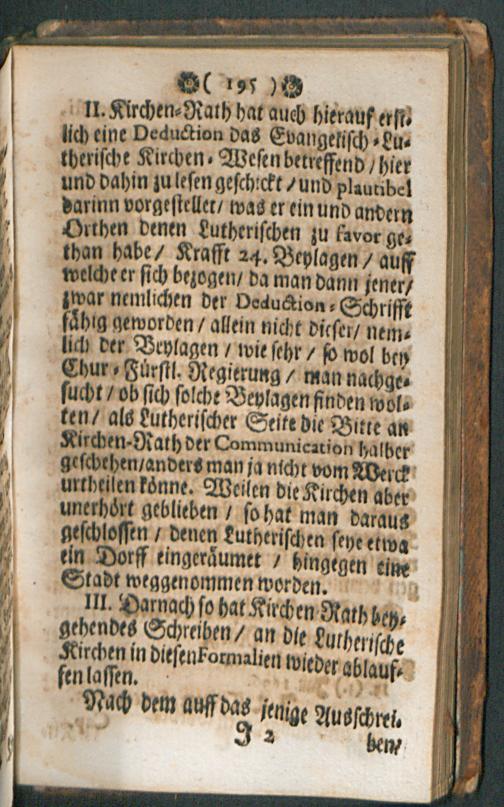 ( 195 )
II. Kirchen-Rath hat auch hierauf erst-
lich eine Deduction das Evangelisch-Lu-
therische Kirchen-Wesen betreffend / hier
und dahin zu lesen geschickt / und plautibel
darinn vorgestellet / was er ein und andern
Orthen denen Lutherischen zu favor ge-
than habe / Krafft 24. Beylagen / auff
welche er sich bezogen / da man dann jener /
zwar nemlichen der Deduction-Schrifft
fähig geworden / allein nicht dieser / nem-
lich der Beylagen / wie sehr / so wol bey
Chur-Fürstl. Regierung / man nachge-
sucht / ob sich solche Beylagen finden wol-
ten / als Lutherischer Seite die Bitte an
Kirchen-Rath der Communication halber
geschehen / anders man ja nicht vom Werck
urtheilen könne. Weilen die Kirchen aber
unerhört geblieben / so hat man daraus
geschlossen / denen Lutherischen seye etwa
ein Dorff eingeräumet / hingegen eine
Stadt weggenommen worden.
III. Darnach so hat Kirchen-Rath bey-
gehendes Schreiben / an die Lutherische
Kirchen in diesen Formalien wieder ablauf-
fen lassen.
Nach dem auff das jenige Ausschrei-
J 2
ben /